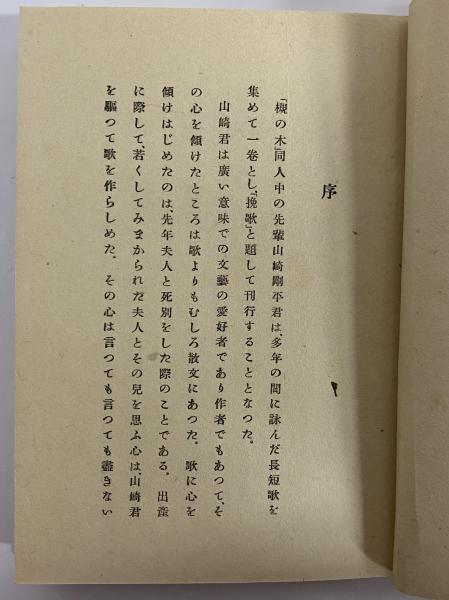 序
『槻の木』同人中の先輩山崎剛平君は、多年の間に詠んだ長短歌を
集めて一卷とし『挽歌』と題して刊行することとなつた。
山崎君は廣い意味での文藝の愛好者であり作者でもあつて、そ
の心を傾けたところは歌よりもむしろ散文にあつた。歌に心を
傾けはじめたのは、先年夫人と死別をした際のことである。出產
に際して、若くしてみまかられた夫人とその兒を思ふ心は、山崎君
を驅つて歌を作らしめた。その心は言つても言つても盡きない